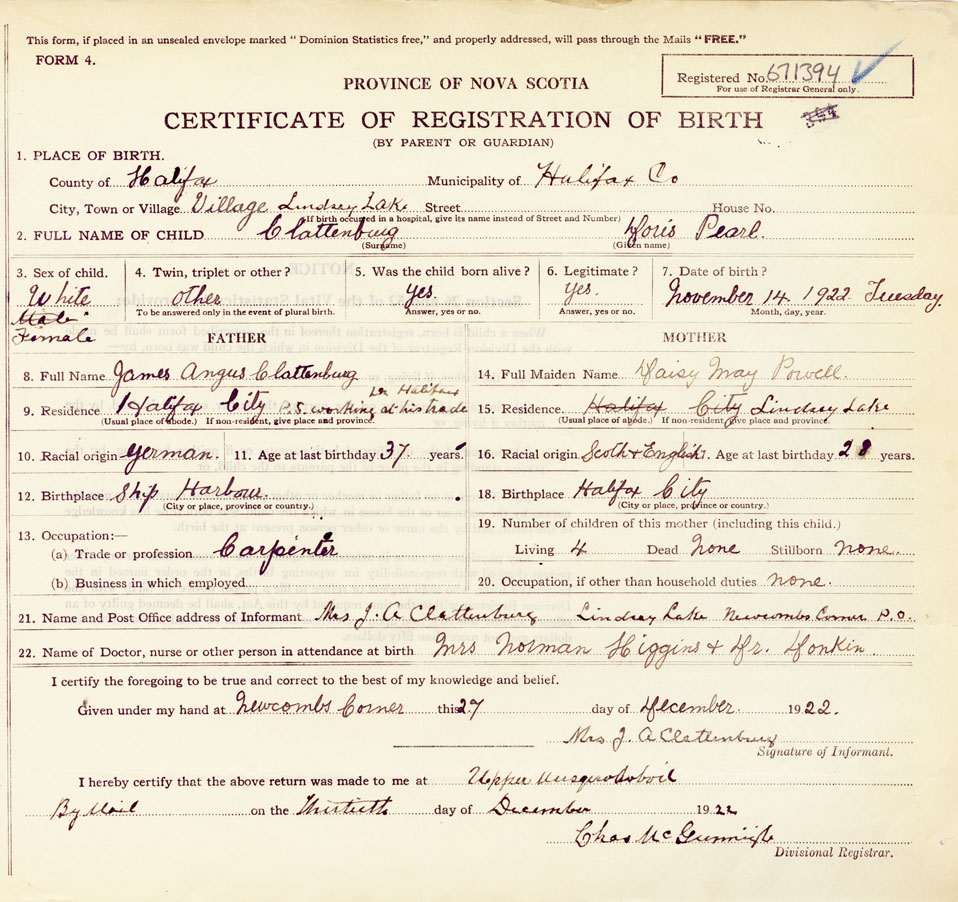 This form, if placed in an unsealed envelope marked "Dominion Statistics free," and properly addressed, will pass through the Mails "FREE."
FORM 4.
Registered No. 671394
For use of Registrar General only.
PROVINCE OF NOVA SCOTIA
CERTIFICATE OF REGISTRATION OF BIRTH
(BY PARENT OR GUARDIAN)
1. PLACE OF BIRTH.
County of Halifax Municipality of Halifax Co
City, Town or Village Village Lindsay Lake Street House No.
(If birth occurred in a hospital, give its name instead of Street and Number)
2. FULL NAME OF CHILD Clattenburg Doris Pearl.
(Surname) (Given name)
3. Sex of child. 4. Twin, triplet or other? 5. Was the child born alive? 6. Legitimate? 7. Date of birth?
White other yes. yes. November 14. 1922 Tuesday
To be answered only in the event of plural birth. Answer, yes or no. Answer, yes or no. Month, day, year.
Male
Female
FATHER MOTHER
8. Full Name James Angus Clattenburg 14. Full Maiden Name Daisy May Powell.
in Halifax
9. Residence Halifax City P.S. working at his trade 15. Residence Halifax City Lindsay Lake
(Usual place of abode.) If non-resident, give place and province. (Usual place of abode.) If non-resident, give place and province.
10. Racial origin German. 11. Age at last birthday 37 years. 16. Racial origin Scoth & English 17. Age at last birthday 28 years.
12. Birthplace Ship Harbour. 18. Birthplace Halifax City
(City or place, province or country.) (City or place, province or country.)
13. Occupation:— 19. Number of children of this mother (including this child.)
(a) Trade or profession Carpenter Living 4 Dead None Stillborn none.
(b) Business in which employed 20. Occupation, if other than household duties none.
21. Name and Post Office address of Informant Mrs J. A Clattenburg Lindsay Lake Newcombs Corner P.O.
22. Name of Doctor, nurse or other person in attendance at birth Mrs Norman Higgins & Dr. Donkin
I certify the foregoing to be true and correct to the best of my knowledge and belief.
Given under my hand at Newcombs Corner this 27 day of December. 1922.
Mrs J. A Clattenburg
Signature of Informant.
I hereby certify that the above return was made to me at Upper Musquodoboit
By Mail on the Thirtieth day of December 1922
Chas
Divisional Registrar.